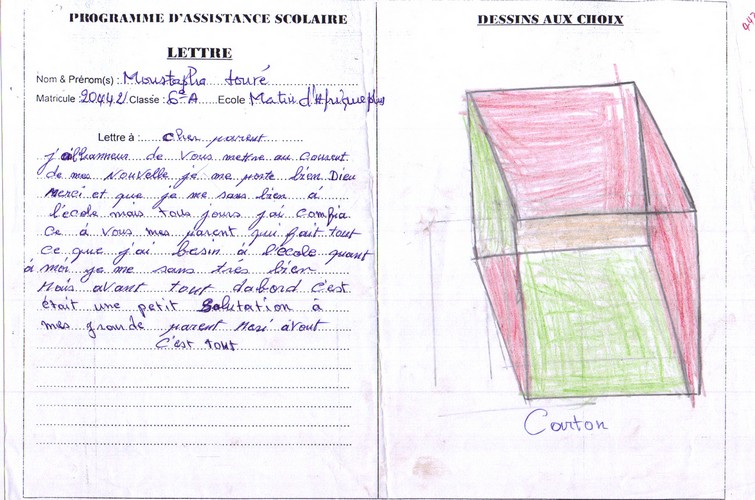 PROGRAMME D'ASSISTANCE SCOLAIRE
LETTRE
Nom & Prérom(s) : Moustapha touré
Matricule : 20442 Classe : 6e A Ecole Matin d'Afrique plus
Lettre à : cher parent
j'ai l'hanneur de vous mettre au courent
de mes Nouvelle je me porte bien Dieu
Merci et que je me sans bien à
l'école mais tous jours j'ai comfia
ce à vous mes parent qui fait tout
ce que j'ai besin à l'école quant
à moi je me sans très bien
Mais avant tout dabord c'est
était une petit Salutation à
mes grande parent Merci avout
C'est tout
DESSINS AUX CHOIX
Carton